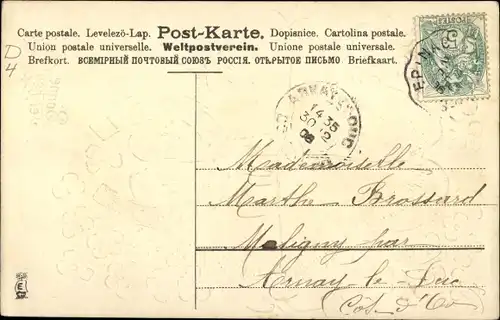 Carte postale. Levelezö-Lap. Post-Karte. Dopisnice. Cartolina postale.
Union postale universelle. Weltpostverein. Unione postale universale.
Brefkort. ВСЕМІРНЫЙ ПОЧТОВЫЙ СОЮЗЪ РОССІЯ. ОТКРЫТОЕ ПИСЬМО. Briefkaart.
D
4
EPINAC
5
ARNAY-LE-DUC
14 35
30 12
06
Mademoiselle
Marthe Brossard
Maligny par
Arnay-le-Duc
Côte d'Or